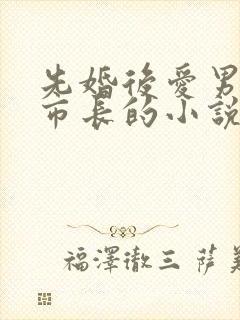 先婚後愛男
市長的小說
福澤徹三 薩